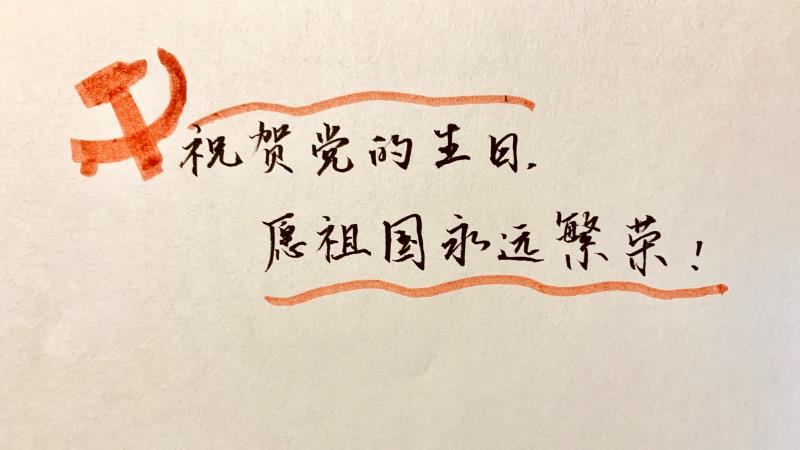 祝贺党的生日,
愿祖国永远繁荣!